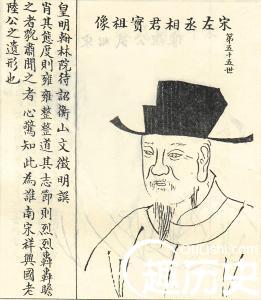 宋左丞相君實祖像
第五十五世
皇明翰林院待詔衡山文徵明譔
肖其態度則雍雍整整道其志節則烈烈轟轟瞻
之者貌肅聞之者心驚知此為誰南宋祥興國老
陸公之遺形也
QuLiShi.com
趣历史